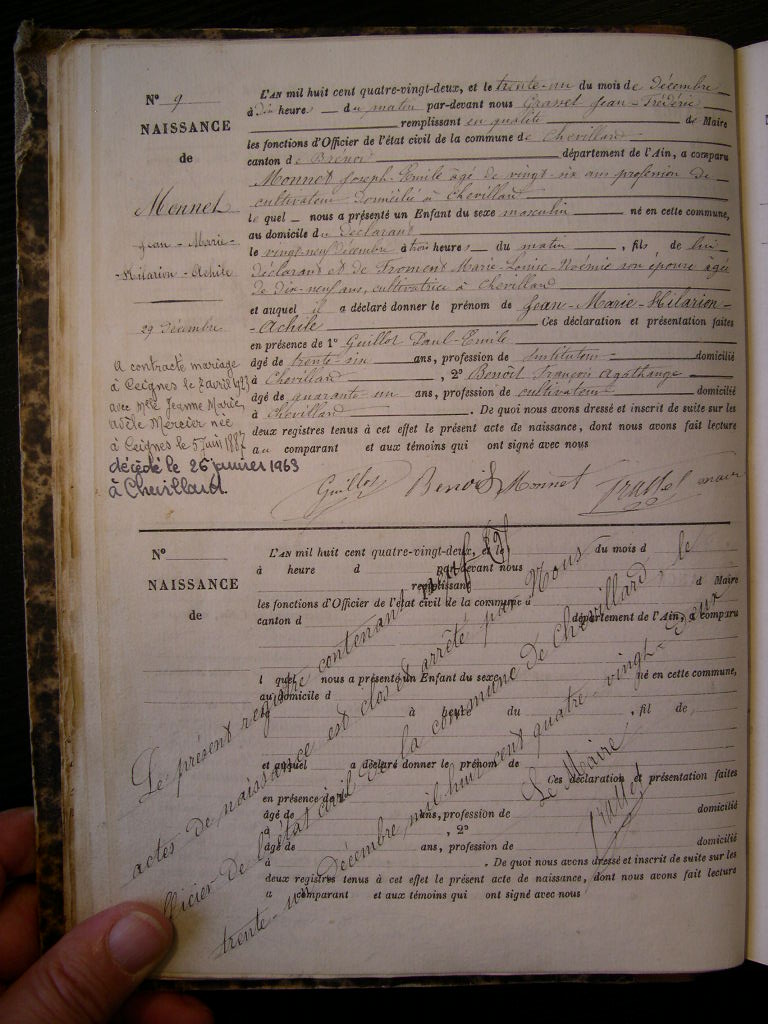 N° 9
NAISSANCE
de
Monnet
Jean-Marie-
-Hilarion-Achile
29 décembre
A contracté mariage
à Ceignes le 7 avril 1923
avec Mlle Jeanne Marie
Mercier née
à Ceignes le 5 juin 1887
décédé le 26 janvier 1963
à Chevillard.
L'AN mil huit cent quatre-vingt-deux, et le trente-un du mois de Décembre
à dix heure du matin par-devant nous Jean-Frédéric
remplissant en qualité de Maire
les fonctions d'Officier de l'état civil de la commune de Chevillard
canton de Brenod département de l'Ain, a comparu
Monnet Joseph-Emile âgé de vingt-six ans profession de
cultivateur domicilié à Chevillard
le quel nous a présenté un Enfant du sexe masculin né en cette commune,
au domicile du déclarant
le vingt-neuf décembre à trois heures du matin, fils de lui
déclarant et de Froment Marie-Louise-Noémie son épouse âgée
de dix-neuf ans, cultivatrice à Chevillard
et auquel il a déclaré donner le prénom de Jean-Marie-Hilarion-
-Achile Ces déclaration et présentation faites
en présence de 1° Guillot Paul-Emile
âgé de trente six ans, profession de Instituteur domicilié
à Chevillard, 2° Benoît François Agathange
âgé de quarante-un ans, profession de cultivateur domicilié
à Chevillard. De quoi nous avons dressé et inscrit de suite sur les
deux registres tenus à cet effet le présent acte de naissance, dont nous avons fait lecture
au comparant et aux témoins qui ont signé avec nous
Guillot Benoît Monnet maire
N°
NAISSANCE
de
L'AN mil huit cent quatre-vingt-deux, et le du mois d
à heure d par-devant nous
remplissant d Maire
les fonctions d'Officier de l'état civil de la commune d
canton d département de l'Ain, a comparu
l quel nous a présenté un Enfant du sexe né en cette commune,
au domicile d
à heure du , fil de
et auquel a déclaré donner le prénom de
Ces déclaration et présentation faites
en présence de 1°
âgé de ans, profession de domicilié
à , 2°
âgé de ans, profession de domicilié
à . De quoi nous avons dressé et inscrit de suite sur les
deux registres tenus à cet effet le présent acte de naissance, dont nous avons fait lecture
a comparant et aux témoins qui ont signé avec nous
Le présent registre contenant neuf (9)
actes de naissance est clos et arrêté par Nous
officier de l'état civil de la commune de Chevillard, le
trente-un décembre mil huit cent quatre-vingt-deux
Le Maire